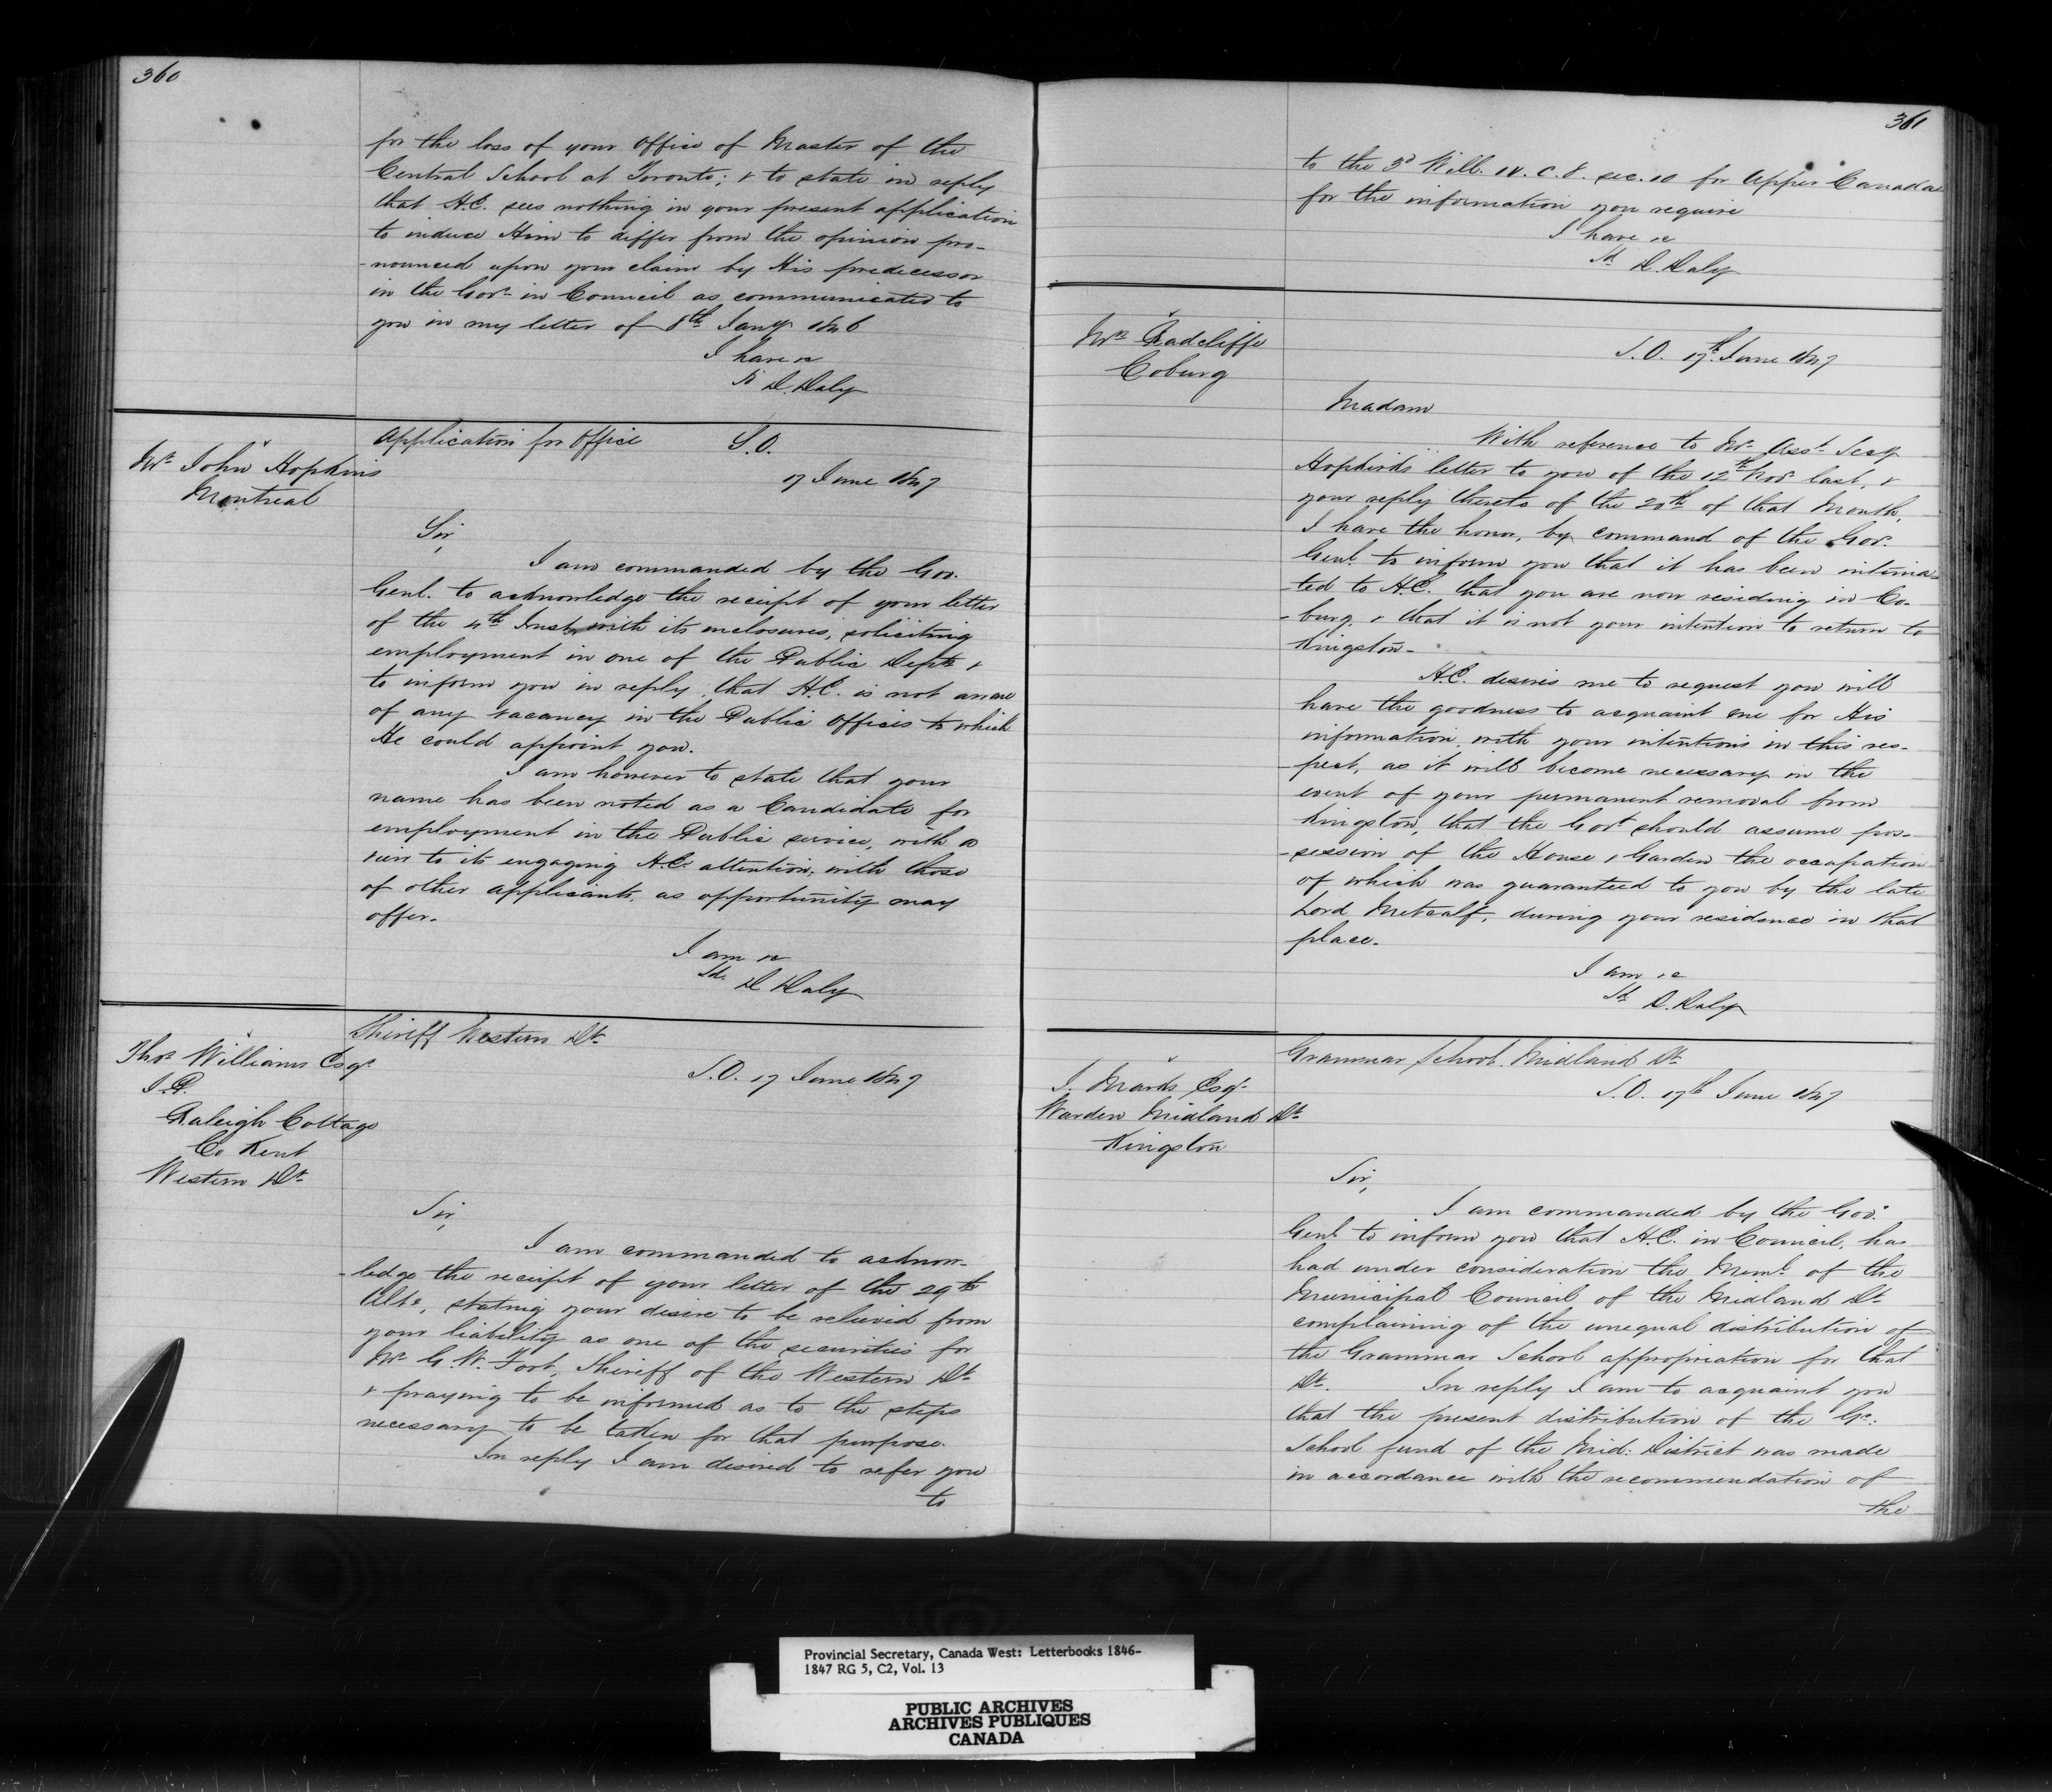 360
for the loss of your Office of Master of the
Central School at Toronto; & to state in reply
that H.E. sees nothing in your present application
to induce Him to differ from the opinion pro-
-nounced upon your claim by His predecessor
in the Govt. in Council as communicated to
you in my letter of 8th Jany 1846
I have &c
Sd D. Daly
Mr. John Hopkins
Montreal
Application for Office S.O.
17 June 1847
Sir,
I am commanded by the Gov.
Genl. to acknowledge the receipt of your letter
of the 4th Inst. with its enclosures, soliciting
employment in one of the Public Depts &
to inform you in reply that H.E. is not aware
of any vacancy in the Public Offices to which
He could appoint you.
I am however to state that your
name has been noted as a Candidate for
employment in the Public service, with a
view to its engaging H.E. attention, with those
of other applicants, as opportunity may
offer.
I am &c
Sd. D Daly
Thos Williams Esqr.
J.P.
Raleigh Cottage
Co Kent
Western Dt.
Sheriff Western Dt.
S.O. 17 June 1847
Sir,
I am commanded to acknow-
-ledge the receipt of your letter of the 29th
Ulto, stating your desire to be relieved from
your liability as one of the securities for
Mr G. W. Foot, Sheriff of the Western Dt.
& praying to be informed as to the steps
necessary to be taken for that purpose.
In reply I am desired to refer you
to
361
to the 3d Will. IV. C. 8. sec. 10 for Upper Canada
for the information you require
I have &c
Sd D. Daly
Mrs. Radcliffe
Coburg
S.O. 17th June 1847
Madam
With reference to Mr. Asst. Secy
Hopkirks letter to you of the 12th Nov. last, &
your reply thereto of the 20th of that Month,
I have the honor, by command of the Gov.
Genl. to inform you that it has been intima-
-ted to H.E. that you are now residing in Co-
-burg, & that it is not your intention to return to
Kingston.
H.E. desires me to request you will
have the goodness to acquaint me for His
information with your intentions in this res-
-pect, as it will become necessary in the
event of your permanent removal from
Kingston, that the Govt should assume pos-
-session of the House & Garden the occupation
of which was guaranteed to you by the late
Lord Metcalf, during your residence in that
place.
I am &c
Sd D. Daly
J. Marks Esqr.
Warden Midland Dt.
Kingston
Grammar School. Midland Dt.
S.O. 17th June 1847
Sir,
I am commanded by the Gov.
Genl. to inform you that H.E. in Council, has
had under consideration the Meml. of the
Municipal Council of the Midland Dt.
complaining of the unequal distribution of
the Grammar School appropriation for that
Dt. In reply I am to acquaint you
that the present distribution of the Gr.
School fund of the Mid: District was made
in accordance with the recommendation of
the
Provincial Secretary, Canada West: Letterbooks 1846-
1847 RG 5, C2, Vol. 13
PUBLIC ARCHIVES
ARCHIVES PUBLIQUES
CANADA